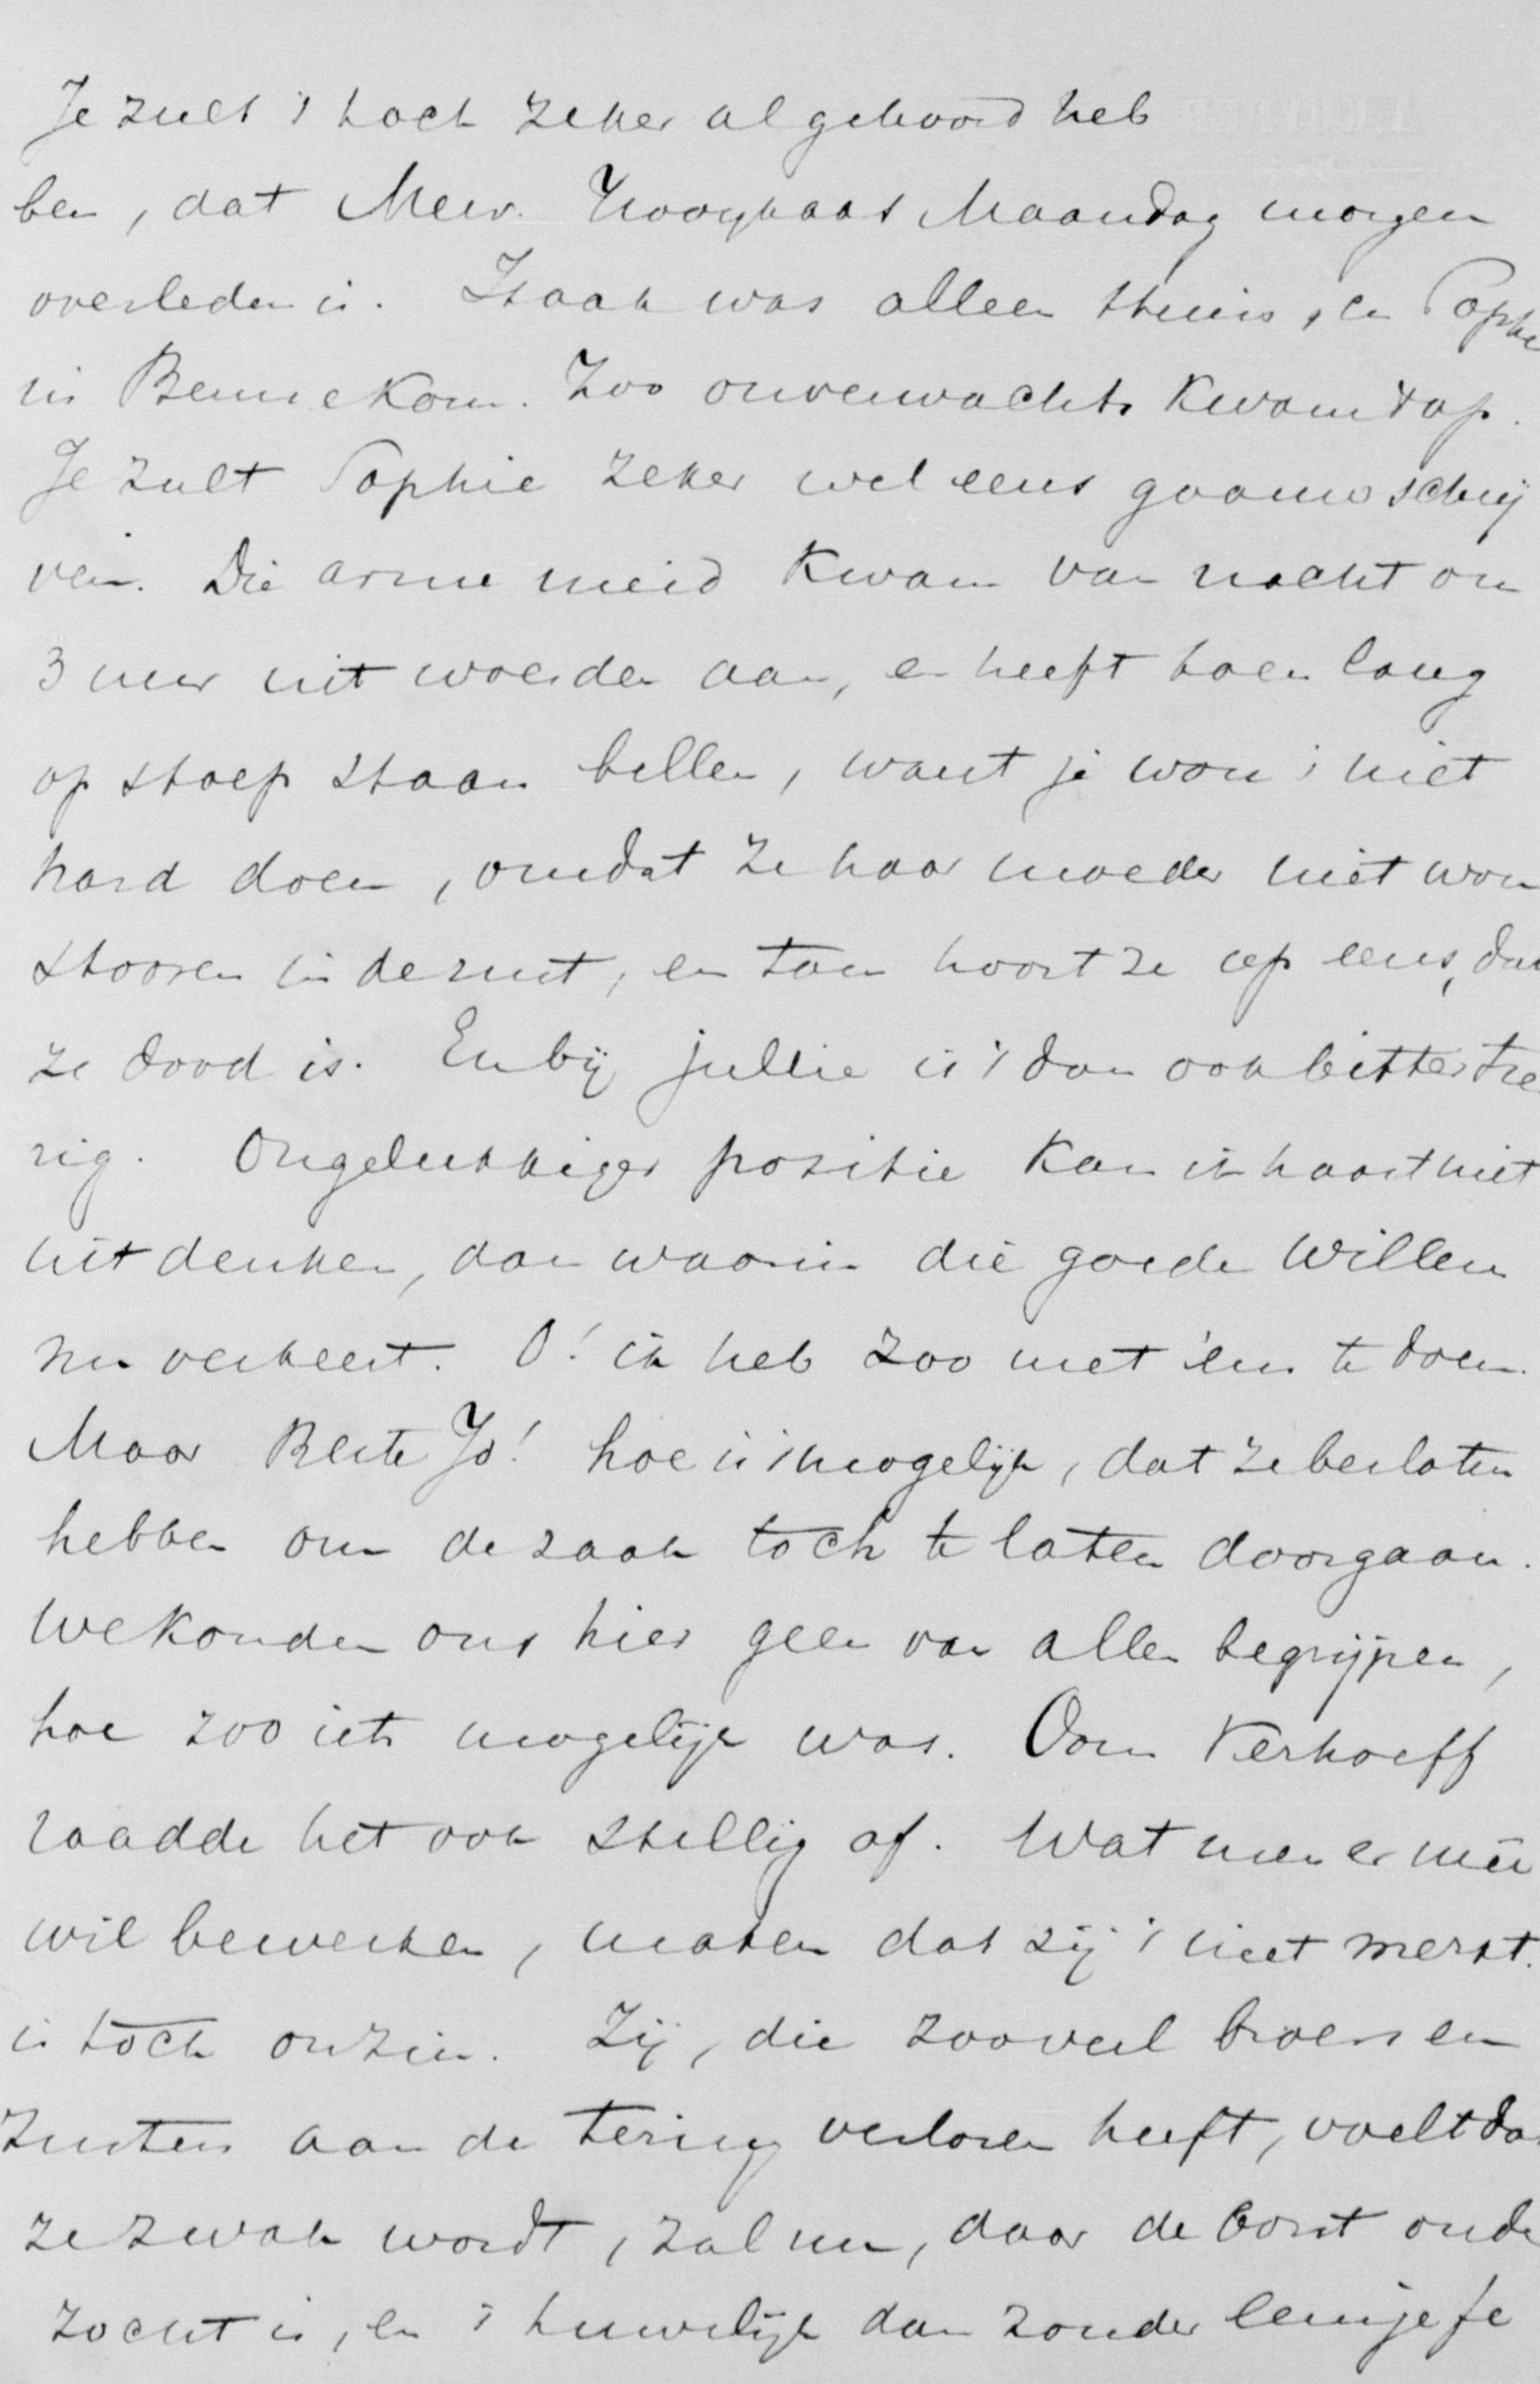 Je zult 't toch zeker al gehoord heb
ben, dat Mevr. Hooghaas Maandag morgen
overleden is. Izaak was alleen thuis, en Sophie
in Bennekom. Zoo onverwachts kwam 't op.
Je zult Sophie zeker wel eens gaauw schrij
ven. Die arme meid kwam van nacht om
3 uur uit Woerden aan, en heeft toen lang
op stoep staan bellen, want je wou 't niet
hard doen, omdat ze haar moeder niet wou
stooren in de rust, en toen hoort ze op eens, dat
ze dood is. En bij jullie is 't dan ook bitter treu
rig. Ongelukkiger positie kan ik haast niet
uitdenken, dan waarin die goede Willem
nu verkeert. O! ik heb zoo met 'em te doen.
Maar Beste Jo! hoe is 't mogelijk, dat ze besloten
hebben om de zaak toch te laten doorgaan.
We konden ons hier geen van allen begrijpen,
hoe zoo iets mogelijk was. Oom Verhoeff
raadde het ook stellig af. Wat men er meê
wil bewerken, maken dat zij 't niet merkt.
is toch onzin. Zij, die zooveel broers en
zusters aan de tering verloren heeft, voelt dat
ze zwak wordt, zal nu, daar de borst onder
zocht is, en 't huwelijk dan zonder eenige fe